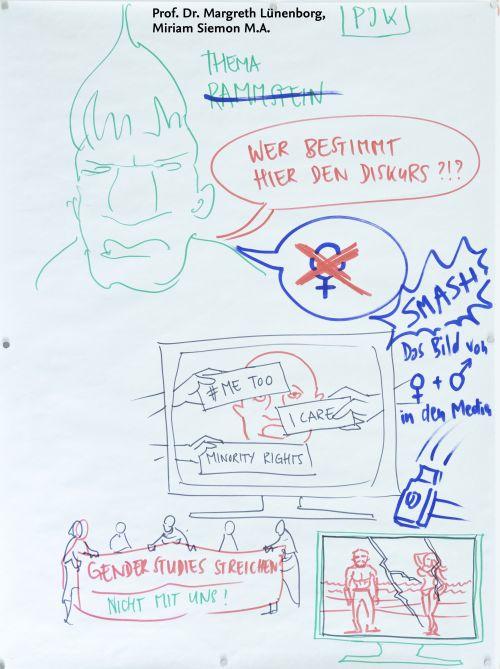 Prof. Dr. Margreth Lünenborg,
Miriam Siemon M.A.
PJK
THEMA
RAMMSTEIN
WER BESTIMMT
HIER DEN DISKURS ?!?
SMASH!
Das Bild von
♀ + ♂
in den Medien
# ME TOO
I CARE
MINORITY RIGHTS
GENDER STUDIES STREICHEN
NICHT MIT UNS!